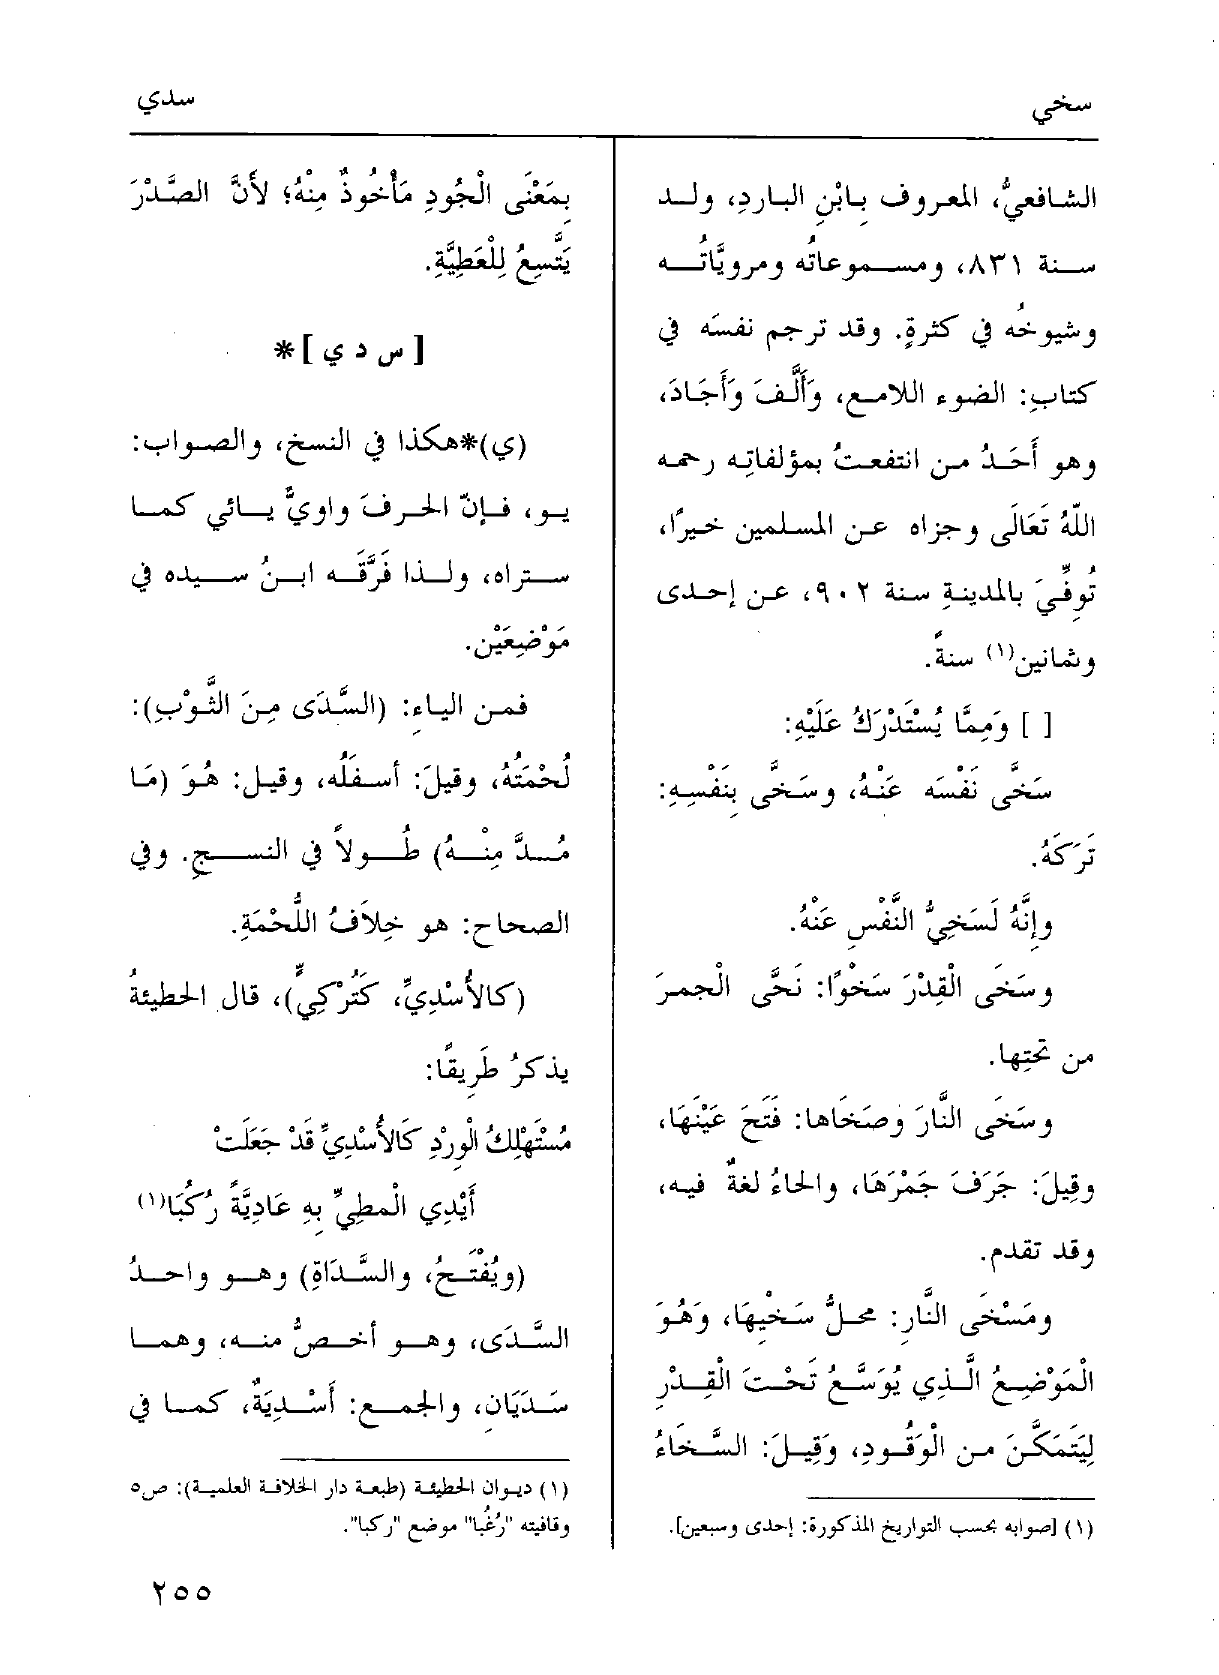 سخي
سدي
الشافعيُّ، المعروف بِابْنِ البارِدِ، ولد
سنة ٨٣١، ومسموعاتُه ومرويَّاتُه
وشيوخُه في كثرةٍ. وقد ترجم نفسَه في
كتابِ: الضوء اللامع، وَأَلَّفَ وَأَجَادَ،
وهو أَحَدُ من انتفعتُ بمؤلفاتِه رحمه
اللّهُ تَعَالَى وجزاه عن المسلمين خيرًا،
تُوفِّيَ بالمدينةِ سنة ٩٠٢، عن إحدى
وثمانين(١) سنةً.
[ ] وَمِمَّا يُسْتَدْرَكُ عَلَيْهِ:
سَخَّى نَفْسَه عَنْهُ، وسَخَّى بِنَفْسِهِ:
تَرَكَهُ.
وإِنَّهُ لَسَخِيُّ النَّفْسِ عَنْهُ.
وسَخَى الْقِدْرَ سَخْوًا: نَحَّى الْجمرَ
من تحتِها.
وسَخَى النَّارَ وصَخَاها: فَتَحَ عَيْنَهَا،
وقِيلَ: جَرَفَ جَمْرَهَا، والحاءُ لغةٌ فيه،
وقد تقدم.
ومَسْخَى النَّارِ: محلُّ سَخْيِهَا، وَهُوَ
الْمَوْضِعُ الَّذِي يُوَسَّعُ تَحْتَ الْقِدْرِ
لِيَتَمَكَّنَ من الْوَقُودِ، وَقِيلَ: السَّخَاءُ
(١) [صوابه بحسب التواريخ المذكورة: إحدى وسبعين].
بِمَعْنَى الْجُودِ مَأْخُوذٌ مِنْهُ؛ لأَنَّ الصَّدْرَ
يَتَّسِعُ لِلْعَطِيَّةِ.
[ س د ي ]*
(ي)*هكذا في النسخ، والصواب:
يو، فإنّ الحرفَ واويٌّ يائي كما
ستراه، ولذا فَرَّقَه ابنُ سيده في
مَوْضِعَيْنِ.
فمن الياءِ: (السَّدَى مِنَ الثَّوْبِ):
لُحْمَتُهُ، وقيلَ: أسفلُه، وقيل: هُوَ (مَا
مُدَّ مِنْهُ) طُولاً في النسجِ. وفي
الصحاحِ: هو خِلاَفُ اللُّحْمَةِ.
(كالأُسْدِيِّ، كَتُرْكِيٍّ)، قال الحطيئةُ
يذكرُ طَرِيقًا:
مُسْتَهْلِكُ الْوِرْدِ كَالأُسْدِيِّ قَدْ جَعَلَتْ
أَيْدِي الْمطِيِّ بِهِ عَادِيَّةً رُكُبَا(١)
(ويُفْتَحُ، والسَّدَاةِ) وهو واحدُ
السَّدَى، وهو أخصُّ منه، وهما
سَدَيَانِ، والجمع: أَسْدِيَةٌ، كما في
(١) ديوان الحطيئة (طبعة دار الخلافة العلمية): ص٥
وقافيته "رُغُبَا" موضع "ركبا".
٢٥٥